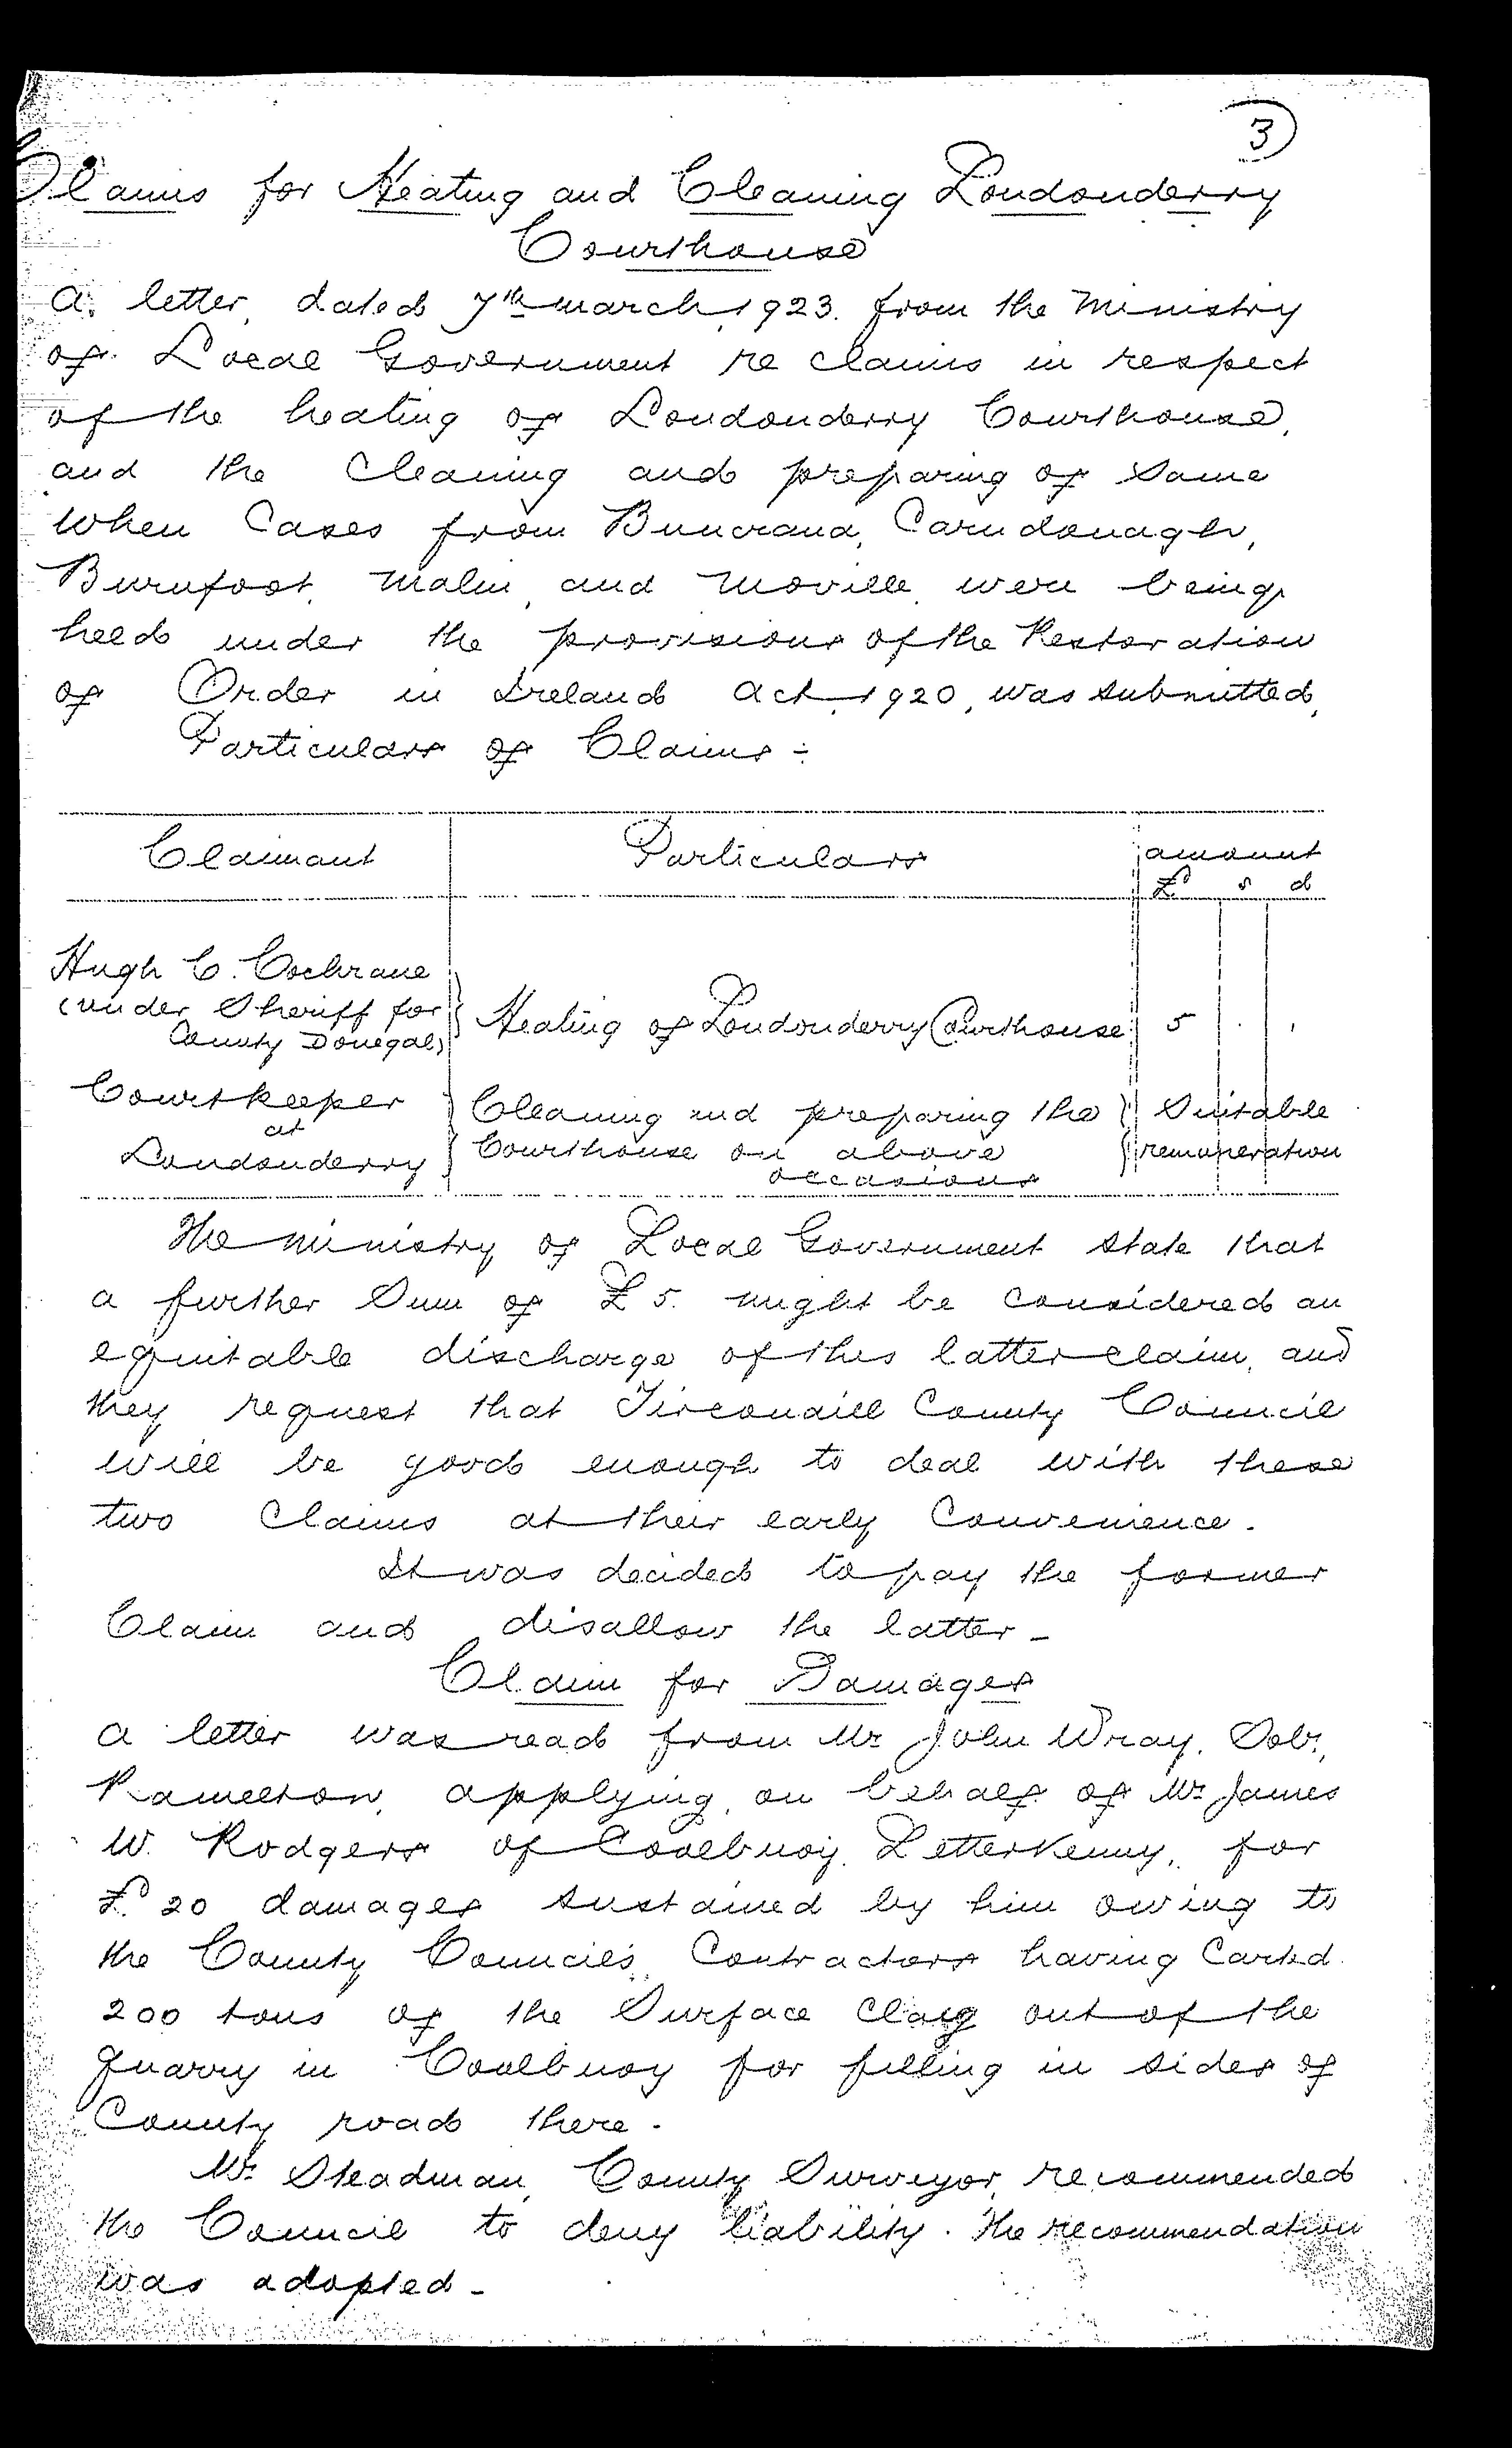 3
Claims for Heating and Cleaning Londonderry
Courthouse
A letter, dated 7th March, 1923, from the Ministry
of Local Government re claims in respect
of the heating of Londonderry Courthouse,
and the cleaning and preparing of same
when cases from Buncrana, Carndonagh,
Burnfoot, Malin, and Moville were being
held under the provisions of the Restoration
of Order in Ireland Act, 1920, was submitted.
Particulars of Claims :-
Claimant Particulars Amount
£ s d
Hugh C. Cochrane
(under Sheriff for
County Donegal) } Heating of Londonderry Courthouse 5 . .
Courtkeeper } Cleaning and preparing the } Suitable
at
Londonderry } Courthouse on above } remuneration
occasions
The Ministry of Local Government state that
a further sum of £5. might be considered an
equitable discharge of this latter claim, and
they request that Tirconaill County Council
will be good enough to deal with these
two claims at their early convenience.
It was decided to pay the former
claim and disallow the latter -
Claim for Damages
A letter was read from Mr John Wray, Solr,
Ramelton, applying, on behalf of Mr James
W. Rodgers of Coolbuoy, Letterkenny, for
£20 damages sustained by him owing to
the County Council's Contractors having carted
200 tons of the surface clay out of the
quarry in Coolbuoy for filling in sides of
County road there.
Mr Steadman, County Surveyor, recommended
the Council to deny liability. The recommendation
was adopted -